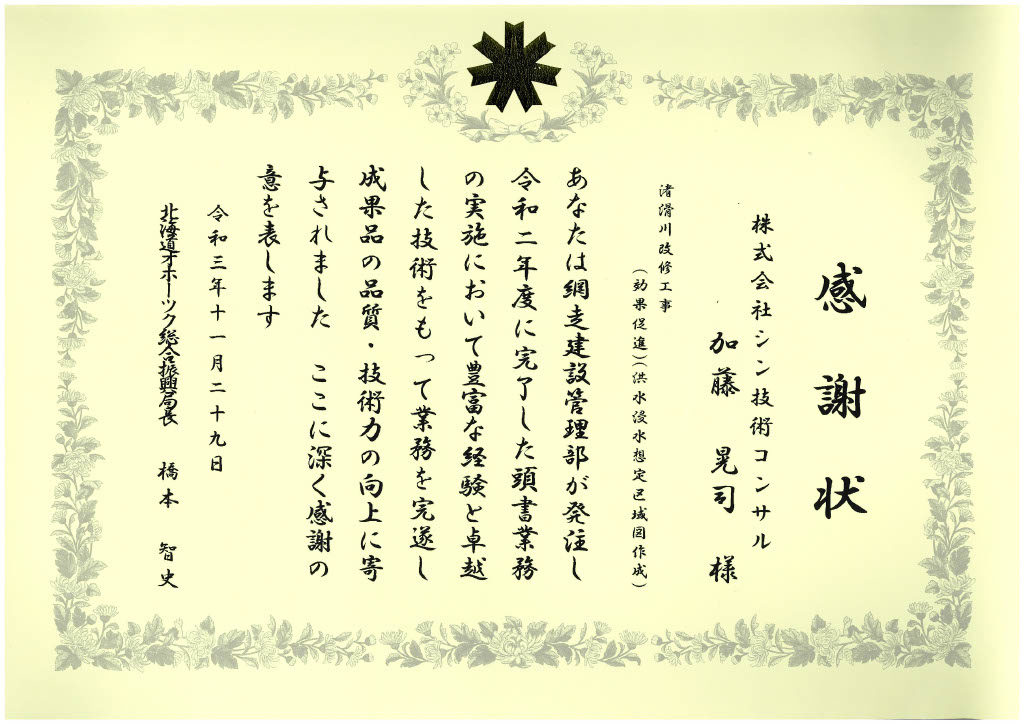 感謝状
株式会社シン技術コンサル
加藤 晃司 様
渚滑川改修工事
(効果促進)(洪水浸水想定区域図作成)
あなたは網走建設管理部が発注し
令和二年度に完了した頭書業務
の実施において豊富な経験と卓越
した技術をもって業務を完遂し
成果品の品質・技術力の向上に寄
与されました ここに深く感謝の
意を表します
令和三年十一月二十九日
北海道オホーツク総合振興局長 橋本 智史